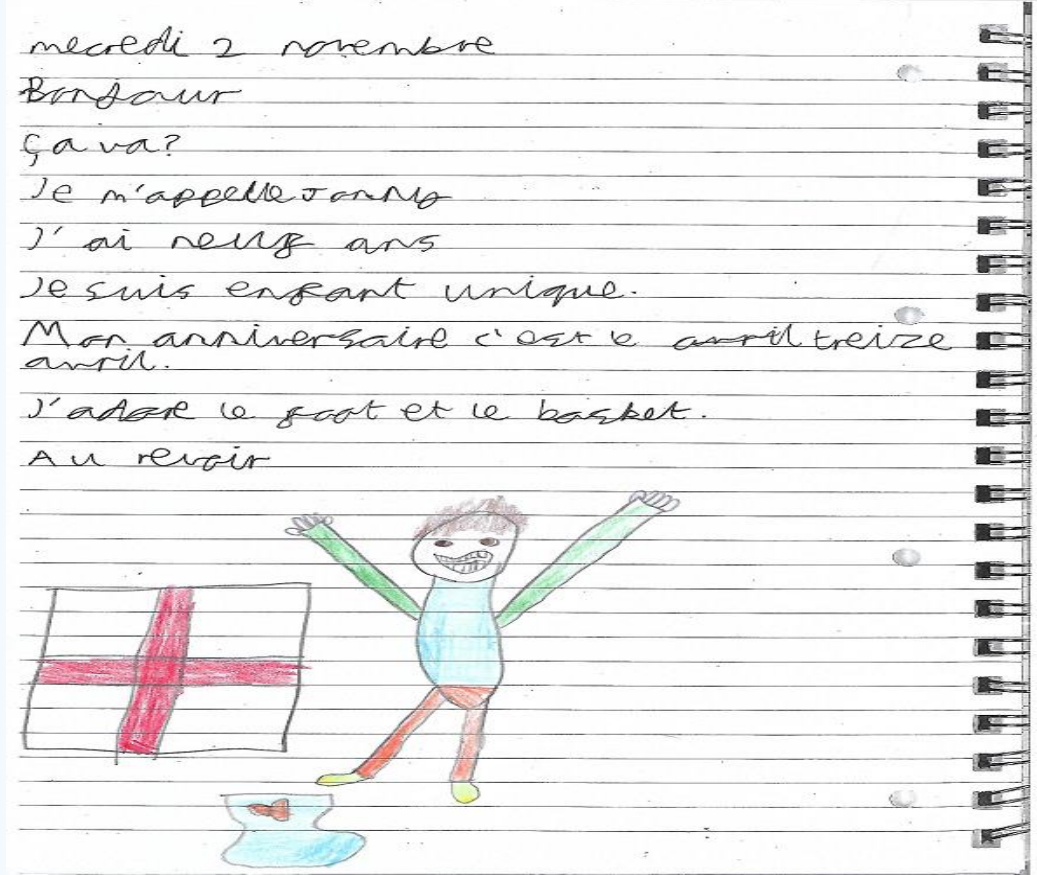 mecredi 2 novembre
Bonjour
Ça va?
Je m'appelle Jonny
J'ai neuf ans
Je suis enfant unique.
Mon anniversaire c'est le avril treize
avril.
J'adore le foot et le basket.
Au revoir